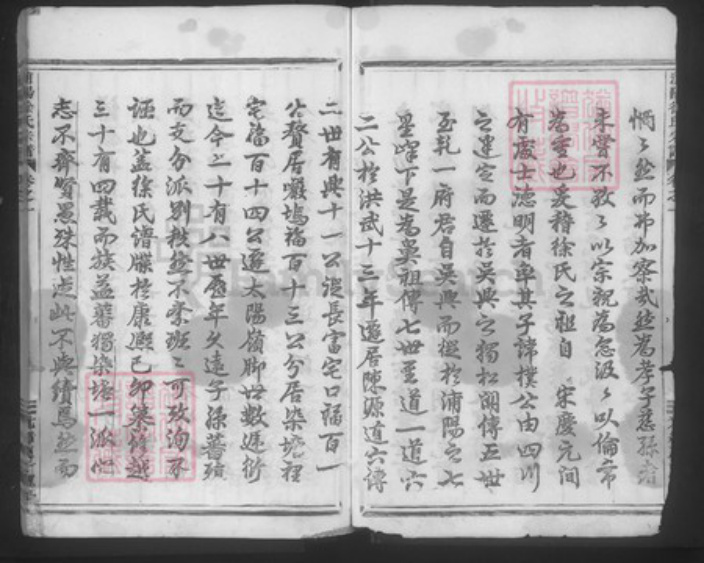 惘惘然而弗加察哉然為孝子慈孫者
未嘗不孜孜以宗祝為念汲汲以倫常
為重也爰稽徐氏之祖自 宋慶元間
有處士德明者率其子諱樸公由四川
之建定而遷於吳興之獨松湖傳五世
至乾一府君自吳興而徙於浦陽之七
里峰下是為吳祖傳七世至道一道六
二公於洪武十三年遷居陳源道六傳
二世有興十一公從長富宅口福百一
公贅居囉塢福百十三公分居染塘裡
宅福百十四公遷太陽嶺脚世數遞衍
迄今二十有八世歷年久遠子孫蕃殖
而支分派別秩然不紊班班可攷洵不
誣也蓋徐氏譜牒於康熙己卯篡修越
三十有四載而族益蕃獨染塘一派心
志不齊賢愚殊性走此不與續焉然而